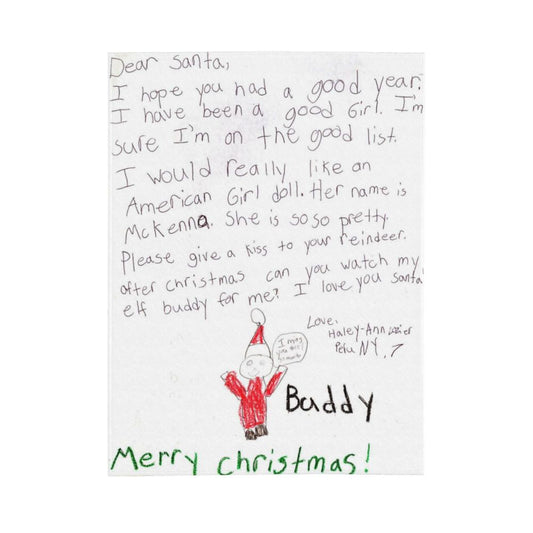 Dear Santa,
I hope you had a good year.
I have been a good Girl. I'm
sure I'm on the good list.
I would really like an
American Girl doll. Her name is
McKenna. She is so so pretty.
Please give a kiss to your reindeer.
after christmas can you watch my
elf buddy for me? I love you santa!
Love,
Haley-Ann
NY, 7
I miss
you
Buddy
Merry christmas!